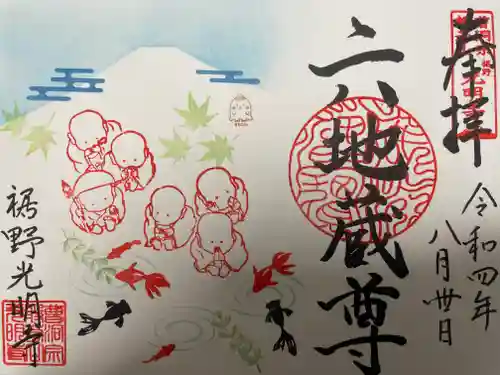 奉拝
令和四年
八月卅日
六地蔵尊
裾野光明寺
曹洞宗
光明寺